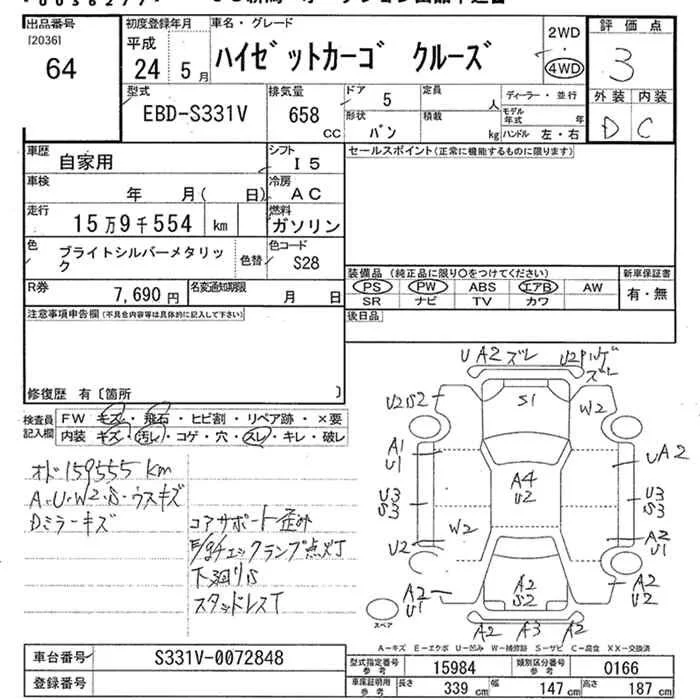 出品番号 初度登録年月 車名・グレード 2WD 評価点
[2036]
64 平成 24 5月 ハイゼットカーゴ クルーズ 4WD 3
型式 排気量 ドア 定員 ディーラー・並行 外装 内装
EBD-S331V 658 CC 5 人 モデル年式 年 D C
形状 バン 積載 kg ハンドル 左・右
車歴 自家用 シフト I5 セールスポイント(正常に機能するものに限ります)
車検 年 月( 日) 冷房 AC
走行 15万9千554 km 燃料 ガソリン
色 ブライトシルバーメタリック 色替 色コード S28
装備品(純正品に限り○をつけてください) 新車保証書
R券 7,690円 名変通知期限 月 日
PS PW ABS エアB AW 有・無
SR ナビ TV カワ
注意事項申告欄(不具合内容等は具体的に記入して下さい) 後日品
修復歴 有〔箇所 〕
検査員記入欄 FW キズ・飛石・ヒビ割・リペア跡・×要
内装 キズ・汚レ・コゲ・穴・スレ・キレ・破レ
オド159555km
A・U・W2・S・ウスキズ
Dミラーキズ
コアサポート歪み
E/gチェックランプ点灯
下廻りS
スタッドレスT
UA2ズレ
S1
U2S2 W2
A1 U1 UA2
A4 U2
U3 S3 U3 S3
W2
U2 A2 U1
A2 U1 A2 S2 A2 U2
A2 A3 A2
スペア
A-キズ E-エクボ U-凹み W-補修跡 S-サビ C-腐食 XX-交換済
車台番号 S331V-0072848 型式指定番号 参考 15984 類別区分番号 参考 0166
登録番号 車庫証明用 参考 長さ 339cm 幅 147cm 高さ 187cm